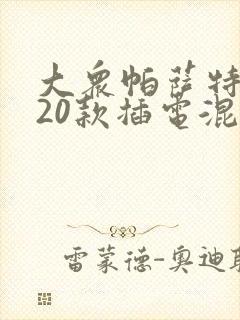 大众帕萨特
20款插电混
雷蒙德-奥迪